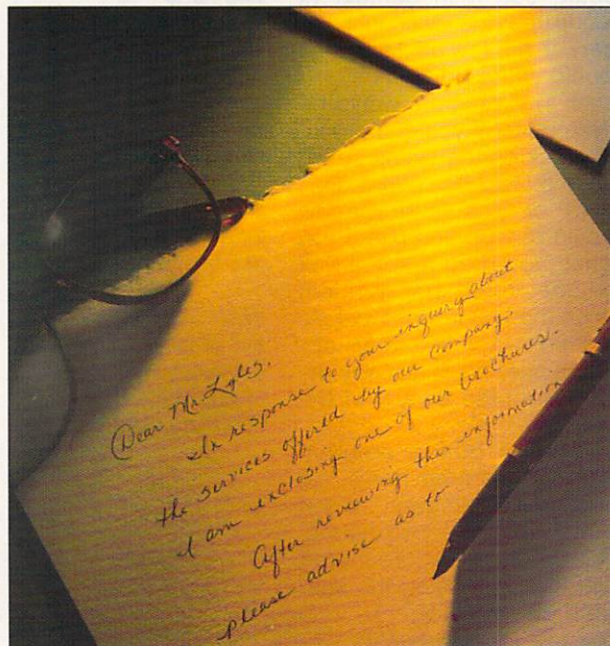 Dear Mr. Lyles,
In response to your inquiry about
the services offered by our company,
I am enclosing one of our brochures.
After reviewing this information
please advise as to